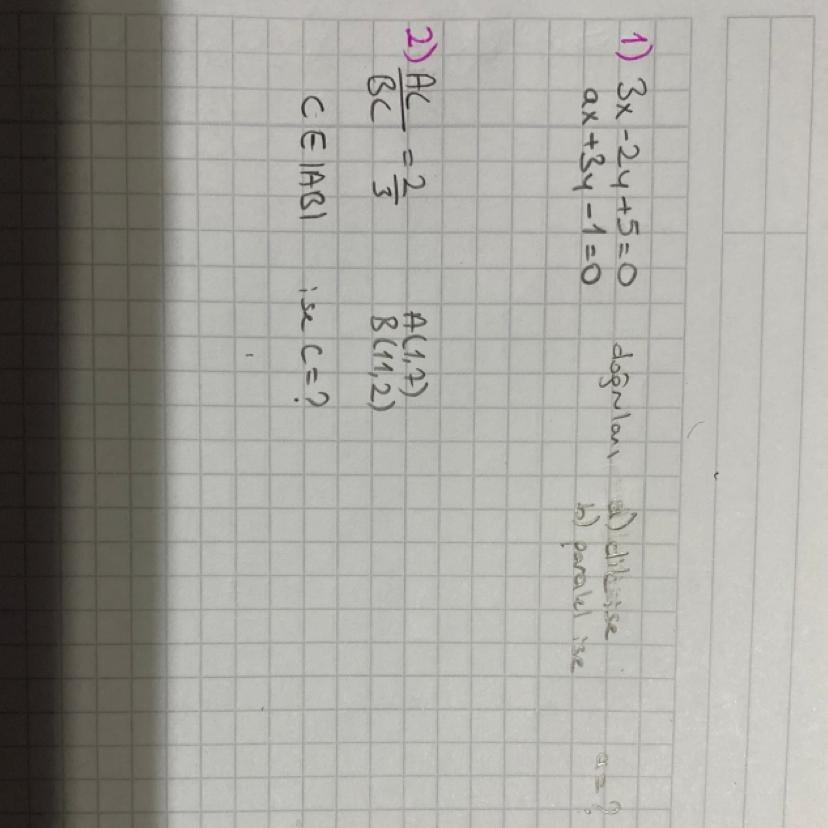 1) 3x-2y+5=0 doğruları a) dik ise a=?
ax+3y-1=0 b) paralel ise
2) AC/BC = 2/3 A(1,7)
B(11,2)
C ∈ |AB| ise C=?